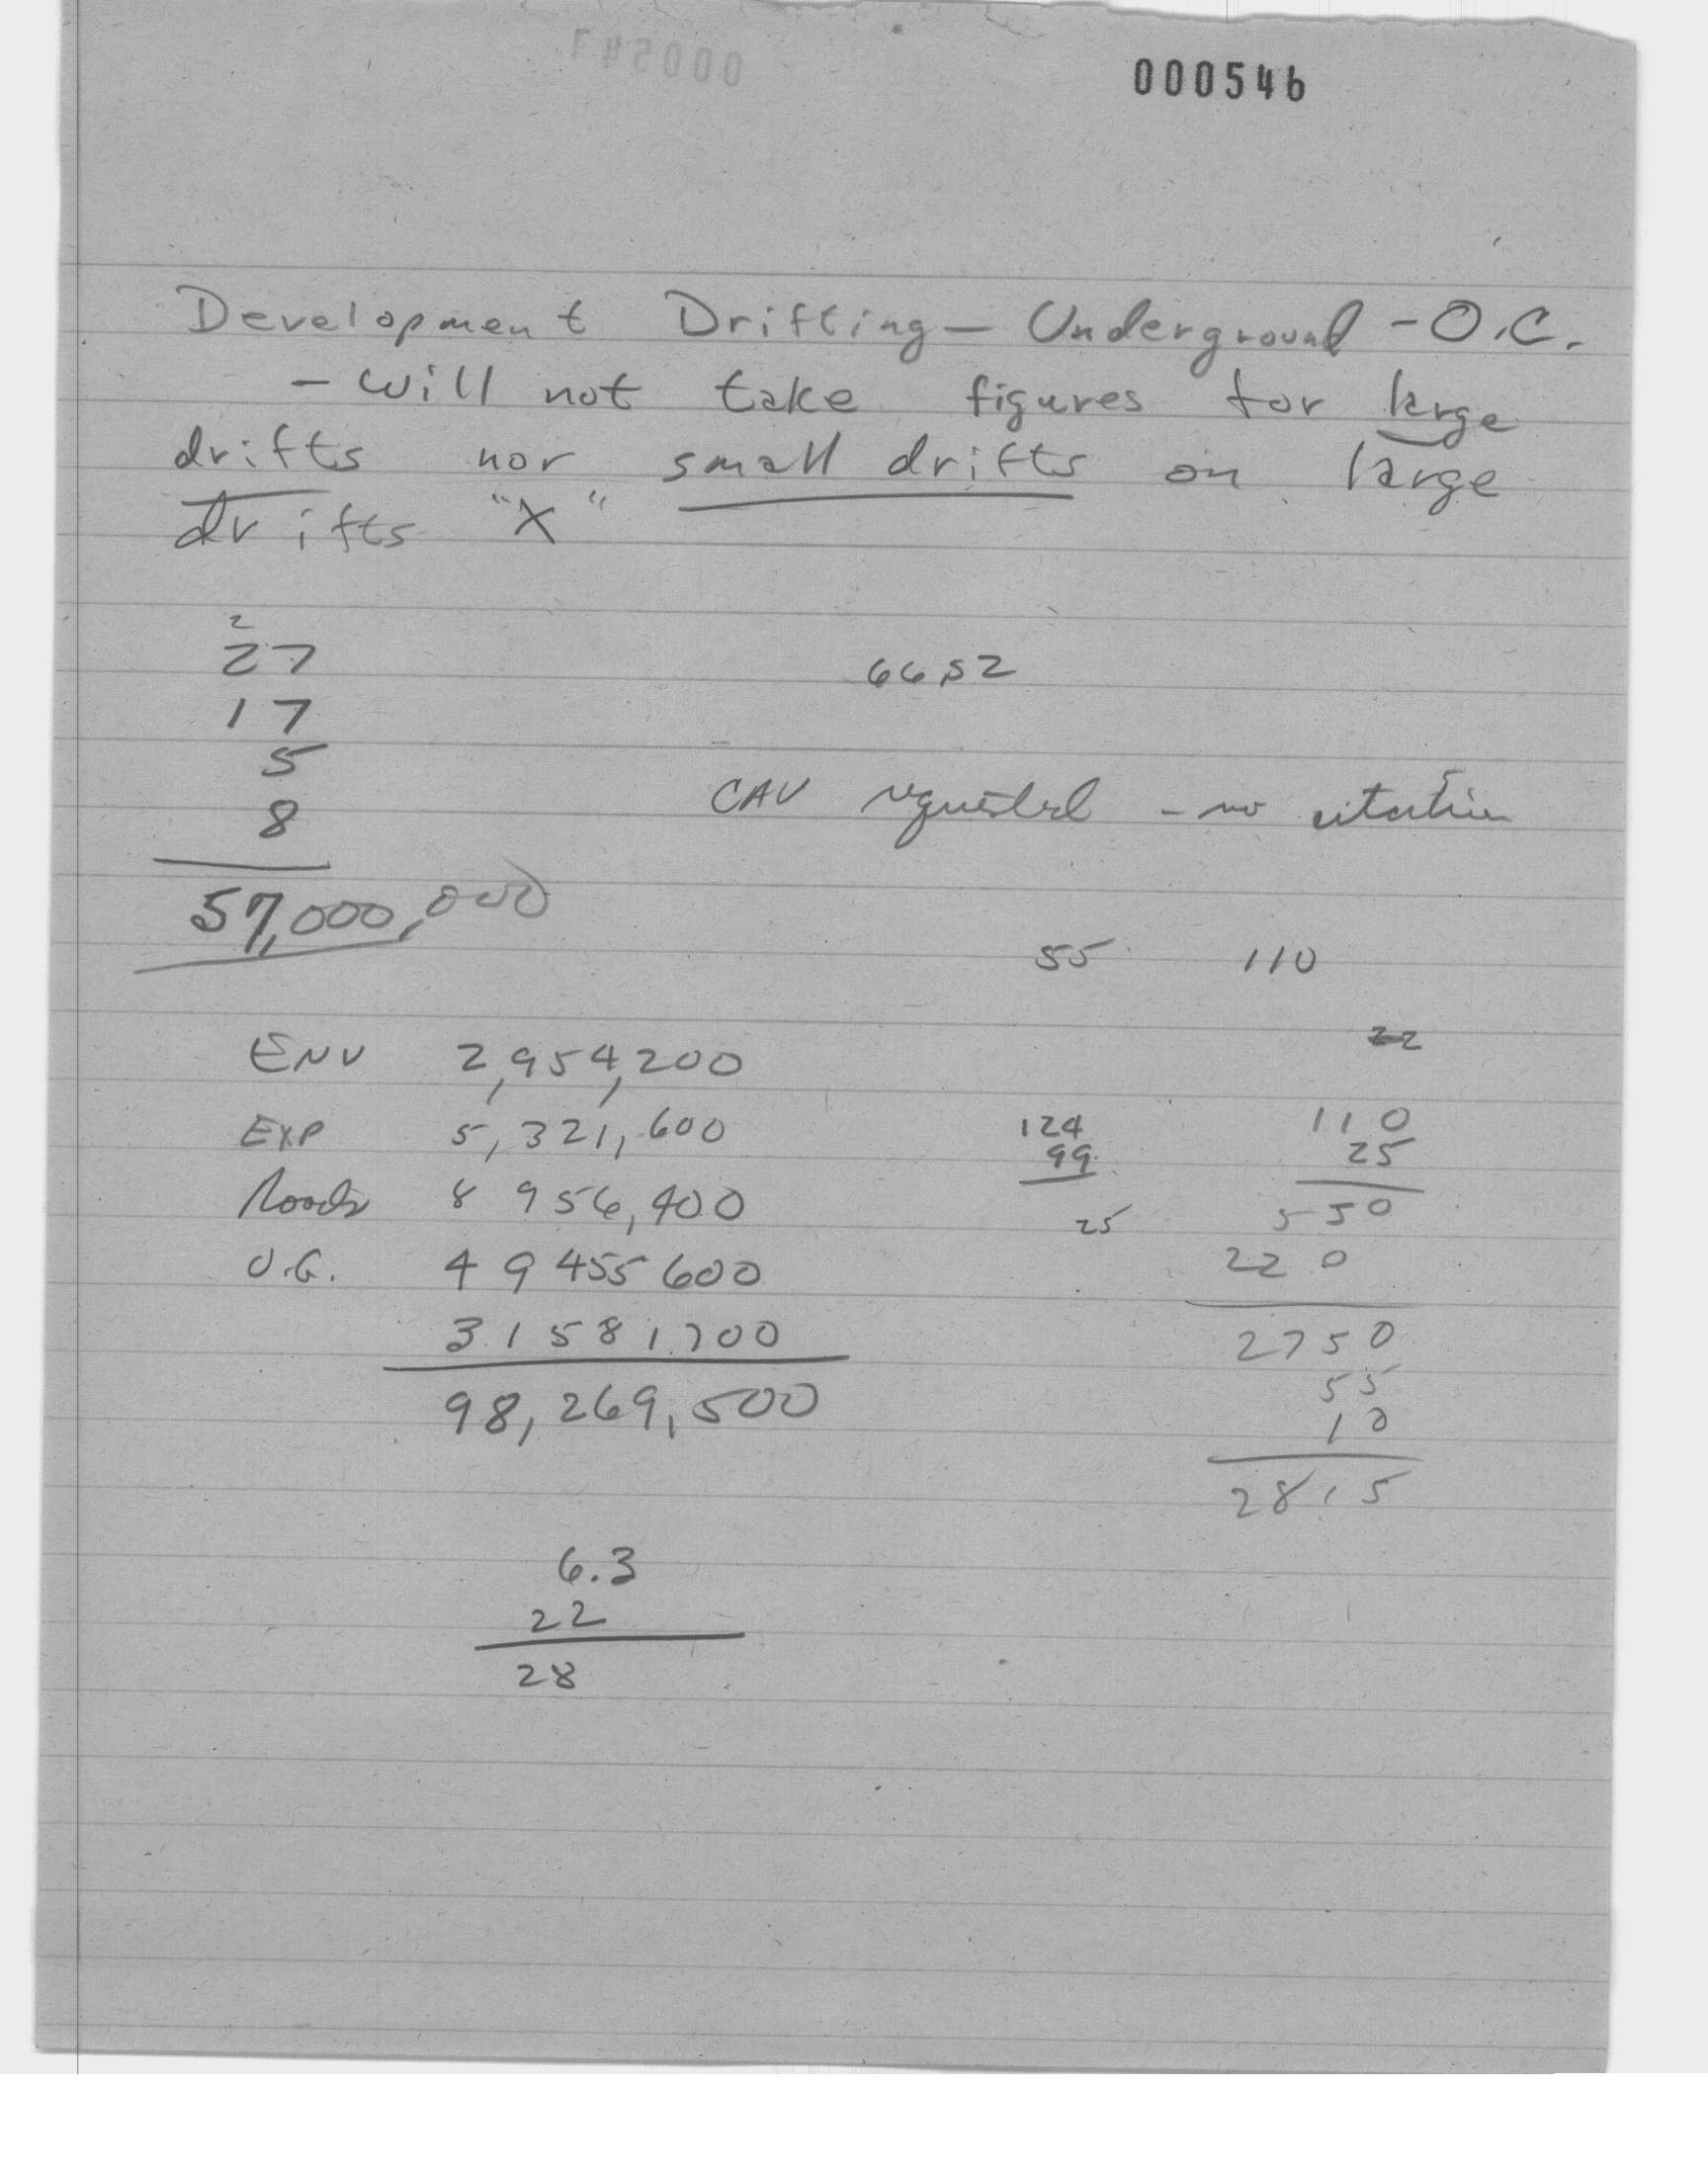 000547
000546
Development Drifting — Underground - O.C.
- will not take figures for large
drifts nor small drifts on large
drifts "X"
2
27
17
5
8
57,000,000
6652
CAV requested - no citation
55 110
22
ENV 2,954,200
EXP 5,321,600
Roads 8 956,400
U.G. 49 455 600
31 581 700
98,269,500
124
99
25
110
25
550
220
2750
55
10
2815
6.3
22
28